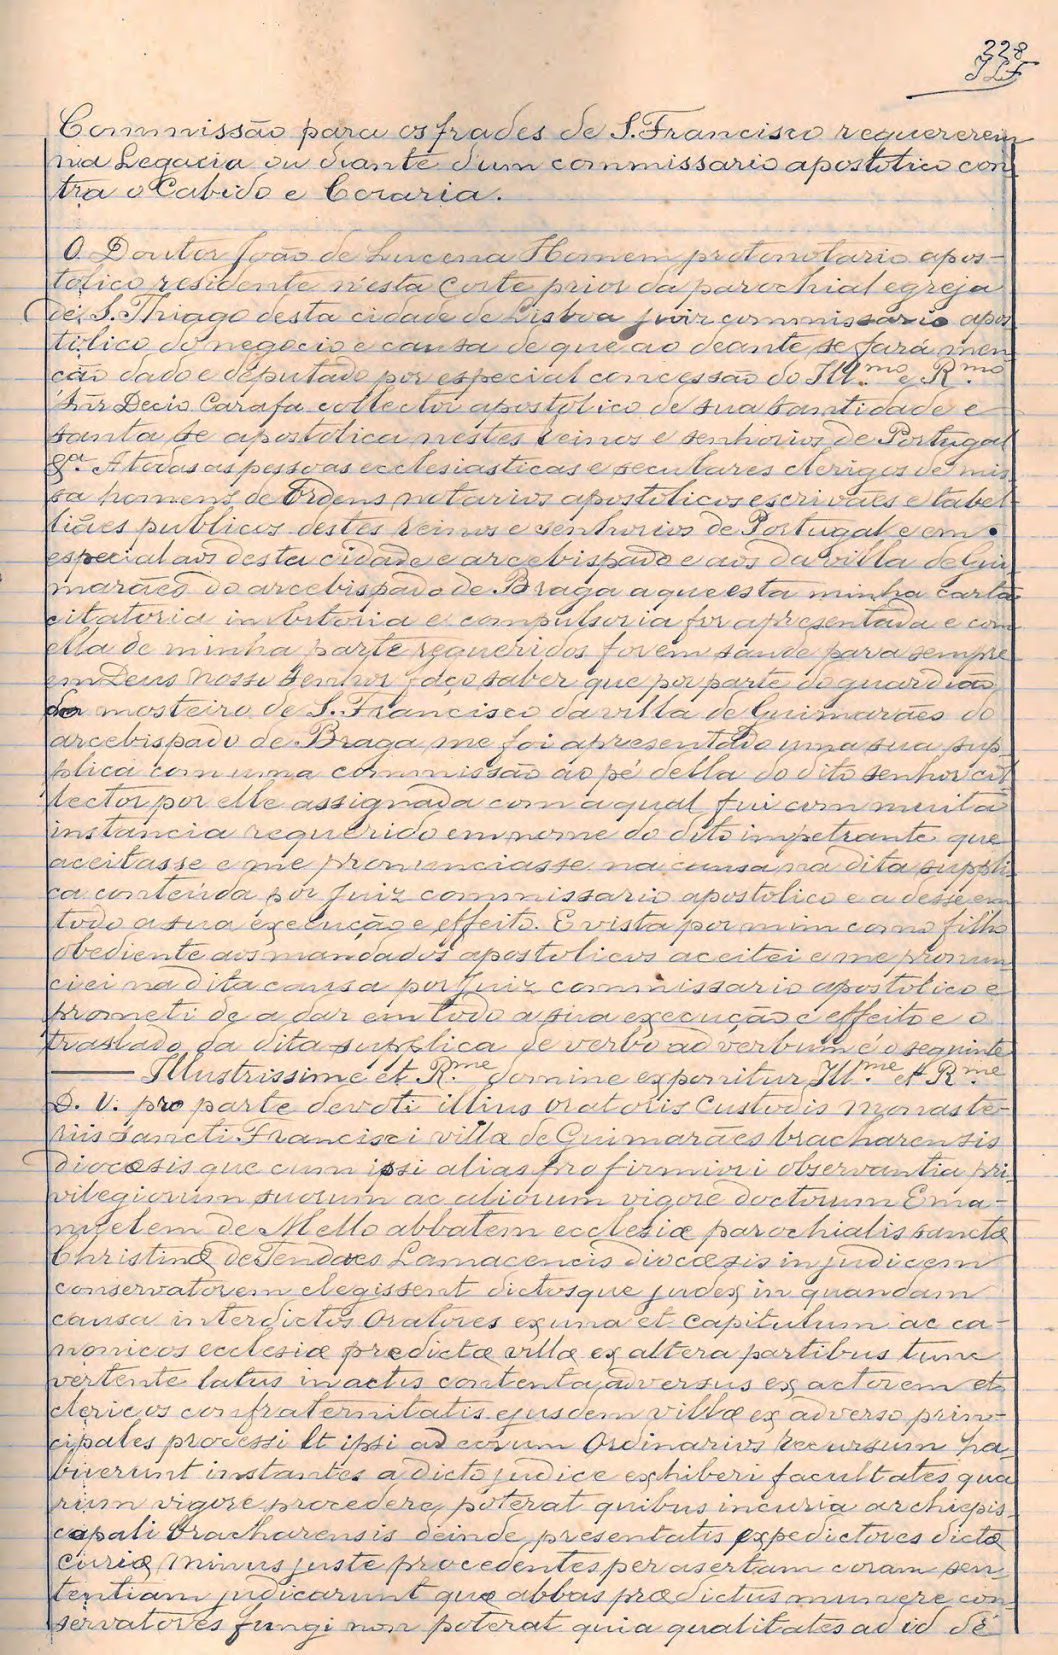 228
JLF
Commissão para os frades de S. Francisco requererem
na Legacia ou diante dum commissario apostolico con
tra o Cabido e Coraria.
O Doutor João de Lucena Homem protonotario apos-
tolico residente n'esta Corte prior da parochial egreja
de S. Thiago desta cidade de Lisboa juiz commissario apos
tolico do negocio e causa de que ao deante se fará men
ção dado e deputado por especial concessão do Ill.mo e R.mo
Snr Decio Carafa collector apostolico de sua santidade e
santa se apostolica nestes reinos e senhorios de Portugal
&.a A todas as pessoas ecclesiasticas e seculares clerigos de mis
sa homens de Ordens notarios apostolicos escrivães e tabel
liães publicos destes reinos e senhorios de Portugal e em
especial aos desta cidade e arcebispado e aos da villa de Gui
marães do arcebispado de Braga a que esta minha carta
citatoria inibitoria e compulsoria for apresentada e com
ella de minha parte requeridos forem saude para sempre
em Deus Nosso Senhor faço saber que por parte do guardião
do mosteiro de S. Francisco da villa de Guimarães do
arcebispado de Braga me foi apresentado uma sua sup
plica com uma commissão ao pé della do dito senhor col
lector por elle assignada com a qual fui com muita
instancia requerido em nome do dito impetrante que
aceitasse e me pronunciasse na causa na dita suppli
ca conteúda por Juiz commissario apostolico e a desse em
todo a sua execução e effeito. E vista por mim como filho
obediente aos mandados apostolicos aceitei e me pronun
ciei na dita causa por Juiz commissario apostolico e
prometi de a dar em todo a sua execução e effeito e o
traslado da dita supplica de verbo ad verbum é o seguinte
Illustrissime et R.me domine exponitur Ill.me et R.me
D. V. pro parte devoti illius Oratoris Custodis Monaste-
riis Sancti Francisci villæ de Guimarães bracharensis
diocæsis que cum ipsi alias pro firmiori observantia pri
vilegiorum suorum ac aliorum vigore doctorum Ema-
nuelem de Mello abbatem ecclesiæ parochialis sanctæ
Christinæ de Tendaes Lamacencis diocæsis in judicem
conservatorem elegissent dictosque judex in quandam
causa inter dictos Oratores ex una et capitulum ac ca-
nonicos ecclesiæ predictæ villæ ex altera partibus tunc
vertente latus in actis contenta adversus ex actorem et
clericos confraternitatis ejusdem villæ ex adverso prin-
cipales processi et ipsi ad eorum Ordinarios recursum ha-
buerunt instantes a dicto judice exhiberi facultates qua
rum vigore procedere poterat quibus in curia archiepis
capali bracharensis deinde presentatis expedictores dictæ
curiæ minus juste procedentes per asertam coram sen
tentiam judicarunt quæ abbas prædictus munere con
servatores fungi non poterat quia qualitates ad id de